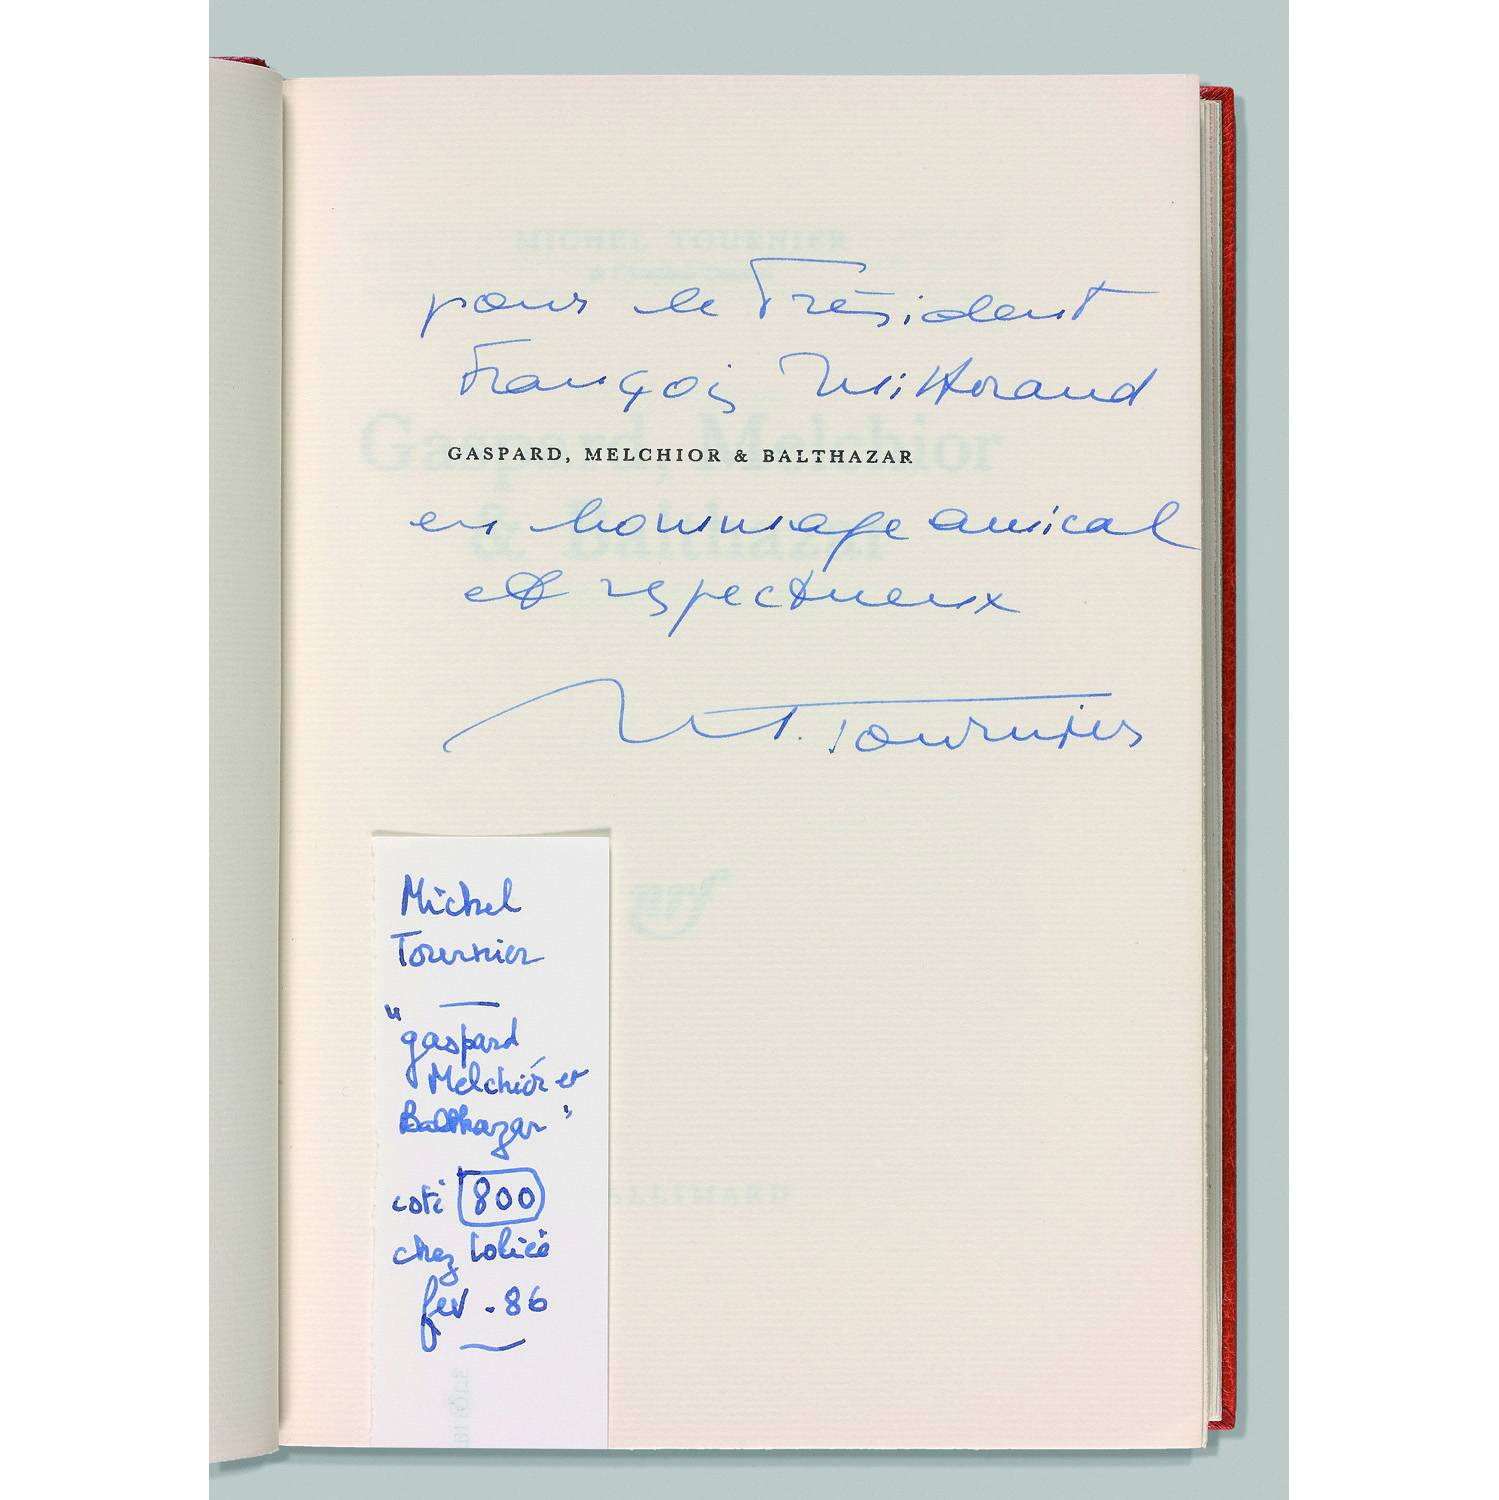 pour le Président
François Mitterand
GASPARD, MELCHIOR & BALTHAZAR
en hommage amical
et respectueux
M. Tournier
Michel
Tournier
"gaspard
Melchior et
Balthazar"
coté 800
chez
fev. 86
MICHEL TOURNIER
Gaspard, Melchior
& Balthazar
nrf
GALLIMARD